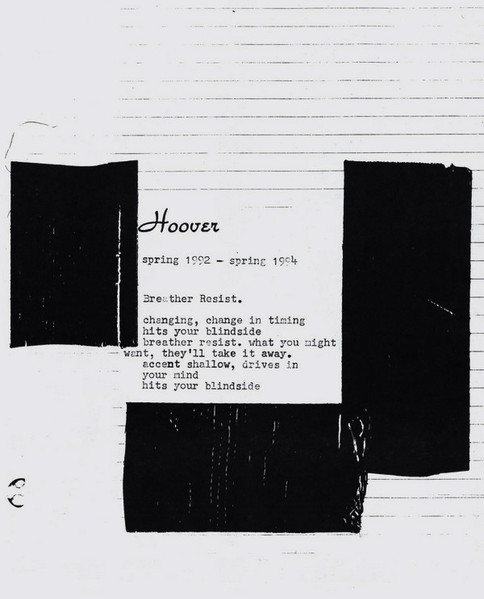 Hoover
spring 1992 - spring 1994
Breather Resist.
changing, change in timing
hits your blindside
breather resist. what you might
want, they'll take it away.
accent shallow, drives in
your mind
hits your blindside